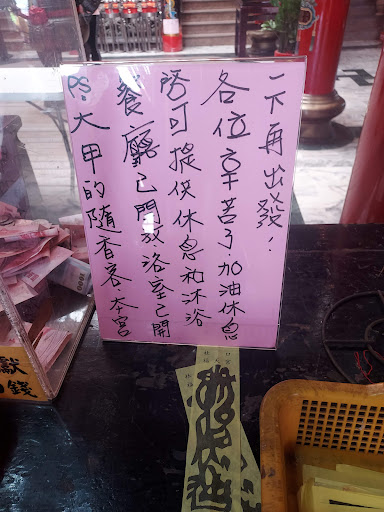 PS:大甲的隨香客 本宮
餐廳已門放洛室已開
可提供休息和沐浴
各位辛苦了.加油休息
一下再出發!
獻
錢